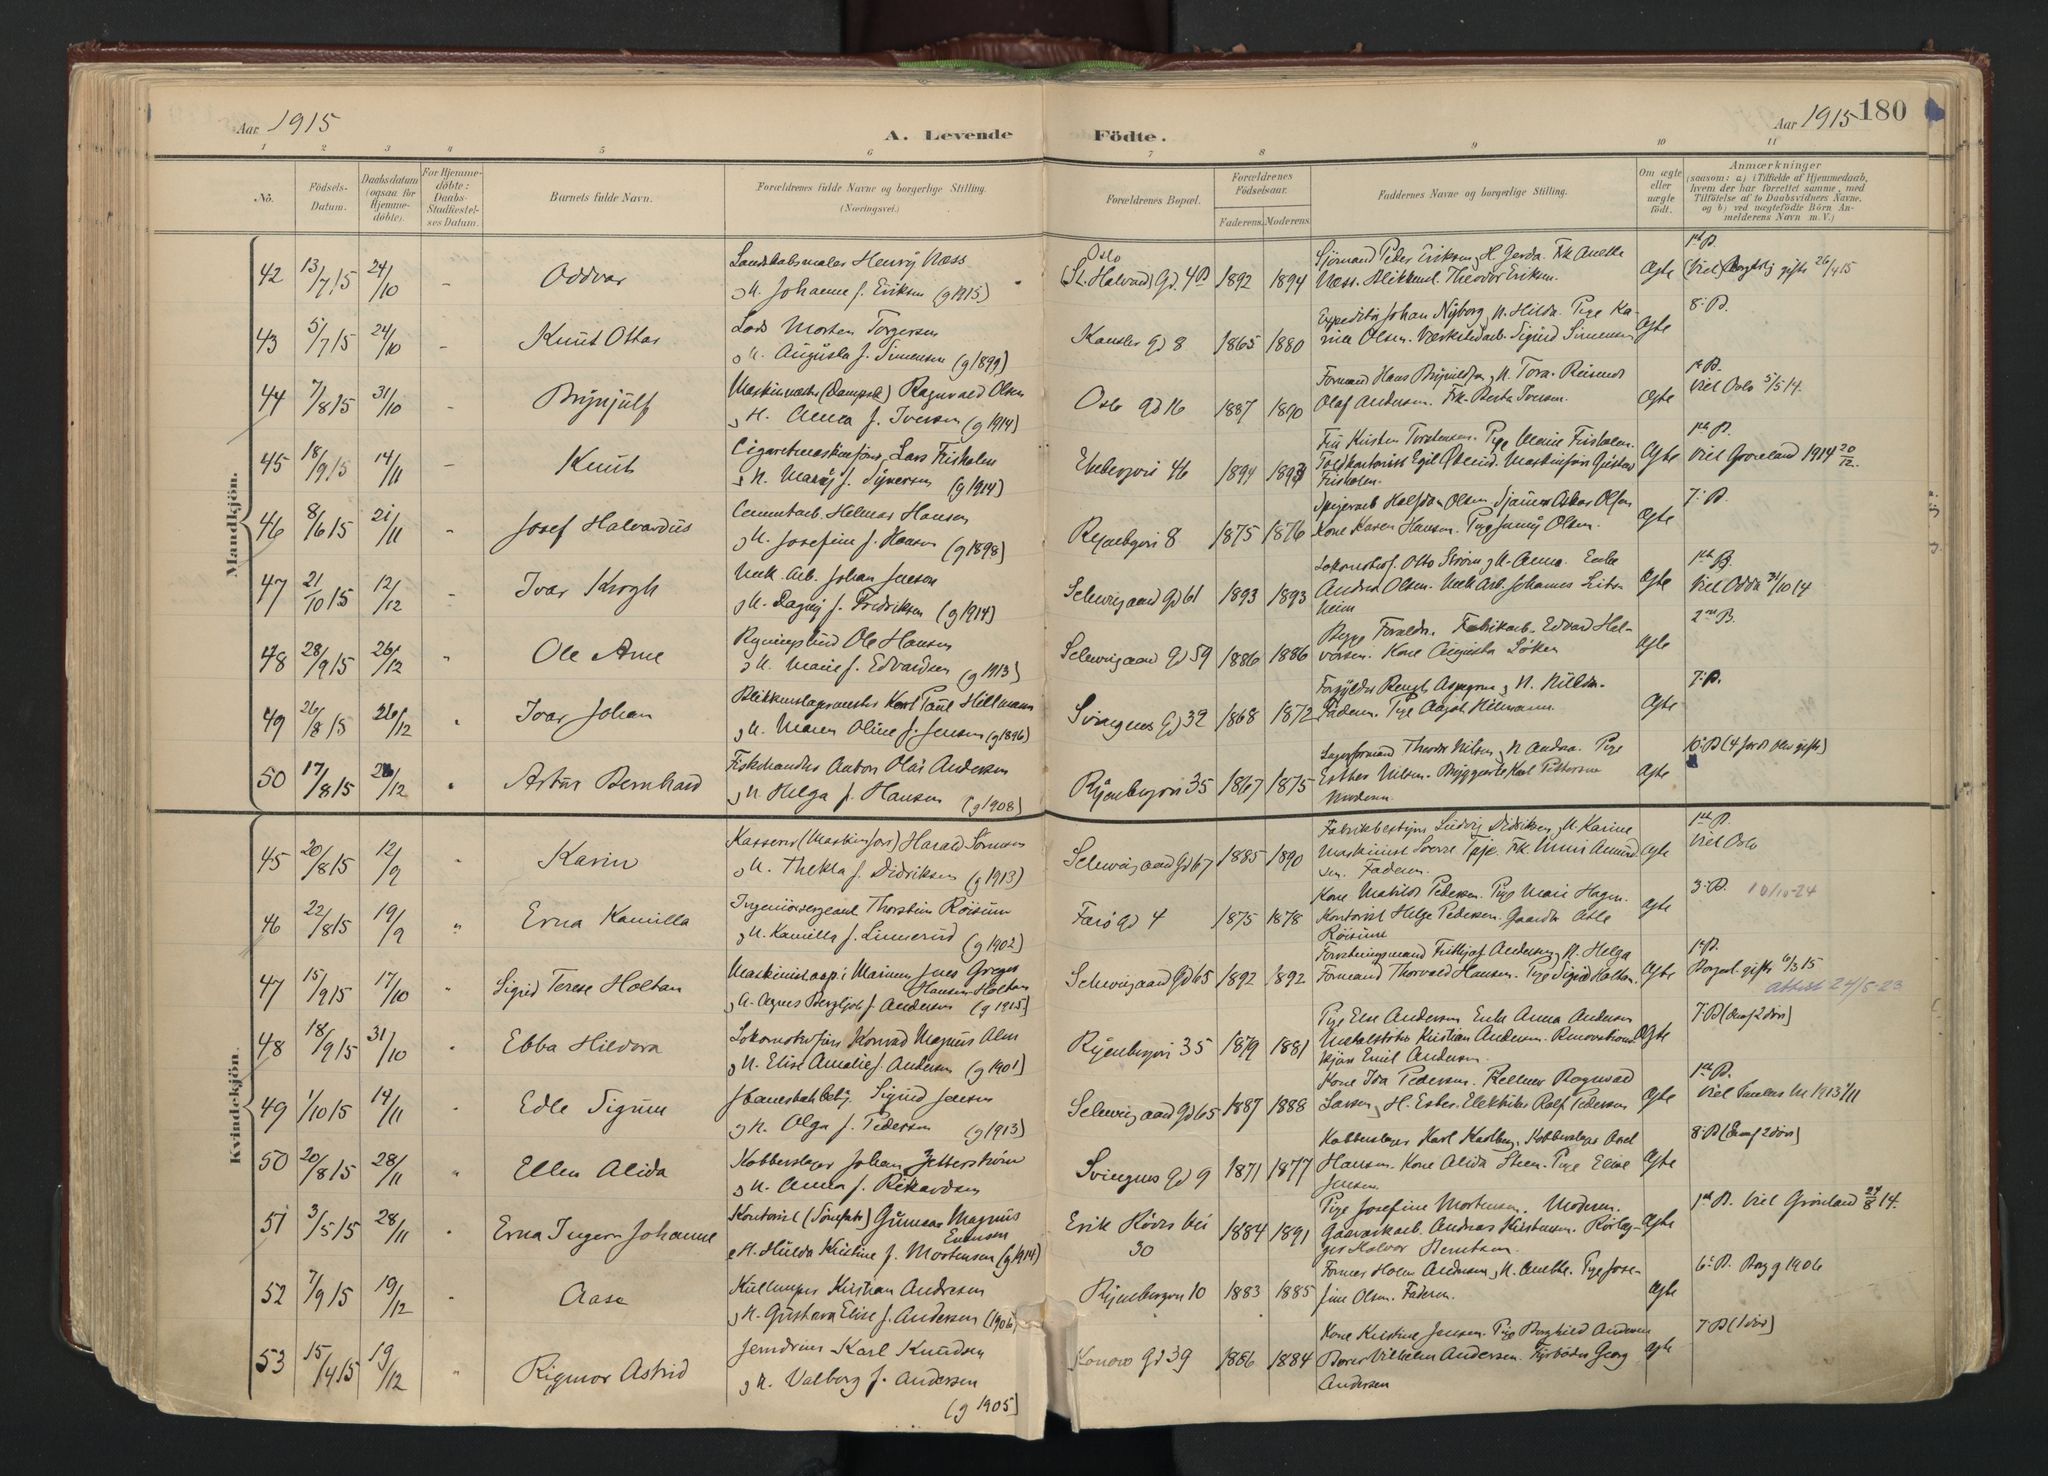 Aar 1915
A. Levende Födte.
Aar 1915 180
1 2 3 4 5 6 7 8 9 10 11
No.
Födsels-Datum.
Daabsdatum (ogsaa for Hjemmedöbte).
For Hjemmedöbte: Daabs-Stadfæstelses Datum.
Barnets fulde Navn.
Forældrenes fulde Navne og borgerlige Stilling. (Næringsvei.)
Forældrenes Bopæl.
Forældrenes Födselsaar.
Faderens. Moderens.
Faddernes Navne og borgerlige Stilling.
Om ægte eller uægte födt.
Anmærkninger
(saasom: a) i Tilfælde af Hjemmedaab, hvem der har forrettet samme, med Tilföielse af to Daabsvidners Navne, og b) ved uægtefödte Börn Anmelderens Navn m. V.)
Mandkjön.
42 13/7 15 24/10 Oddvar
Henrÿ Næss
g H. Johanne f. Eriksen (g 1915)
Oslo
(St. Halvard) Gd. 4 B 1892 1894
Sjömand Peder Eriksen, H. Gerda. Frk Anethe
Næss. Blikkensl. Theodor Eriksen. Ægte
1ste B.
(Viel) Borgerlig gifte 26/4 15
43 5/7 15 24/10 Knut Ottar
Lods Morten Torgersen
g H. Augusta f. Simensen (g 1899)
Kanslergd 8 1865 1880
Expeditör Johan Nÿborg, H. Hilda. Pige Ka-
rine Olsen. Værkstedarb. Sigurd Simensen Ægte
8. B.
44 7/8 15 31/10 Brynjulf
Maskinmester (Dampsk) Ragnvald Olsen
g H. Anna f. Iversen (g 1914)
Oslo gd 16 1887 1890
Formand Hans
Olaf Andersen. Frk. Berta Iversen. Ægte
1ste B.
Viet Oslo 5/5 14.
45 18/9 15 14/11 Knut
Lars Frisholm
g H. Marÿ f. Syversen (g 1914)
Ekebergvei 46 1894 1893
Fru Kirsten Torstensen. Pige Marie Frisholm.
Toldkontorist Egil
Frisholm. Ægte
1ste B.
Viet Grönland 1914 20/12.
46 8/6 15 21/11 Josef Halvardus
Cementarb. Helmar Hansen
g H. Josefine f. Hansen (g 1898)
Ryenbgvei 8 1875 1876
Halfdan Olsen, Oskar Olsen
Kone Karen Hansen. Pige Olsen. Ægte
7. B.
47 21/10 15 12/12 Ivar Krogh
Mek. Arb. Johan Jensen
g H. Dagnÿ f. Fredriksen (g 1914)
Schweigaard Gd 61 1893 1893
Otto Ström g H. Anna. Enke
Andrea Olsen. Mek Arb. Johannes
heim Ægte
1ste B.
Viet Odda 31/10 14
48 28/9 15 26/12 Ole Arne
Ole Hansen
g H. Marie f. Edvardsen (g 1913)
Schweigaard Gd 59 1886 1886
Begge Forældre. Fabrikarb. Edvard Hal-
vorsen. Kone Augusta Löken Ægte
2den B.
49 26/8 15 26/12 Ivar Johan
Blikkenslagermester Karl Paul Hillmann
g H. Maren Oline f. Jensen (g 1896)
Svingens Gd 32 1868 1872
Forgylder Bengt g H. Hilda.
Faderen. Pige Hilmann. Ægte
7. B.
50 17/8 15 26/12 Artur Bernhard
Fiskehandler Anton Olai Andersen
g H. Helga f. Hansen (g 1908)
Ryenbergvei 35 1867 1875
Lagerformand Theodor Nilsen, H. Andrea. Pige
Esther Nilsen. Karl Pettersen
Moderen. Ægte
10. B (4 gifte)
Kvindekjön.
45 20/8 15 12/9 Karin
Kasserer Harald
g H. Thekla f. Didriksen (g 1913)
Schweigaard Gd 67 1885 1890
Fabrikbestyrer Ludvig Didriksen, H. Karine
Maskinist Sverre Frk.
sen. Faderen. Ægte
1ste B.
Viet Oslo
46 22/8 15 19/9 Erna Kamilla
Ingeniörsergeant Thorstein Röisum
g H. Kamilla f. Linnerud (g 1902)
Farö Gd 4 1875 1878
Kone Matilde Pedersen. Pige Marie Hagen.
Kontorist Helge Pedersen. Gaardbr.
Röisum Ægte
3. B. 10/10-24
47 15/9 15 17/10 Sigrid Terese Holtan
Maskinistasp. i Marinen Jens Greger
Hansen-Holtan
g H. Agnes Bergljot f. Andersen (g 1915)
Schweigaard Gd 65 1892 1892
Fridtjof Andersen, H. Helga
Formand Thorvald Hansen. Pige Sigrid Holtan. Ægte
1ste B.
Borgerl. gifte 6/3 15
attest 24/5-23
48 18/9 15 31/10 Ebba Hildora
Konrad Magnus Alm
g H. Elise Amalie f. Andersen (g 1901)
Ryenbergvei 35 1879 1881
Pige Else Andersen Enke Anna Andersen
Kristian Andersen. Renovations
kjörer Emil Andersen. Ægte
7. B (deraf 2 döde)
49 1/10 15 14/11 Edle Sigrun
Sigurd Jensen
g H. Olga f. Pedersen (g 1913)
Schweigaard Gd 65 1887 1888
Kone Ida Pedersen. Kellner Ragnvald
Larsen, H. Ester. Elektriker Rolf Pedersen Ægte
1ste B.
Viet Paulus M. 1913 1/11
50 20/8 15 28/11 Ellen Alida
Kobberslager Johan Zetterström
g H. Anna f. Rikardsen
Svingens Gd 9 1871 1877
Kobberslager Karl Karlberg, Kobberslager Axel
Hansen. Kone Alida Steen. Pige Elise
Jensen Ægte
8. B (deraf 2 döde)
51 3/5 15 28/11 Erna Ingeri Johanne
Kontorist Gunnar Magnus
Evensen
g H. Hulda Kristine f. Mortensen (g 1914)
Erik Höves Vei
30 1884 1891
Pige Josefine Mortensen. Moderen.
Gasværkarb. Andreas Kristensen. Rörlæg-
ger Halvor Berntsen. Ægte
1ste B. Viet Grönland 27/8 14.
52 7/9 15 19/12 Aase
Kristian Andresen
g H. Gustava Elise f. Andersen (1906)
Ryenbergvei 10 1883 1885
Former Holm Andersen, H. Anette. Pige Jose-
fine Olsen. Faderen. Ægte
6. B. Borg g 1906
53 15/4 15 19/12 Rigmor Astrid
Jerndreier Karl Knudsen
g H. Valborg f. Andersen
(g 1905)
Konows Gd 39 1886 1884
Kone Kristine Jensen. Pige Borghild Andersen
Borer Vilhelm Andersen. Fyrböder Georg
Andersen Ægte
7. B (1 död)